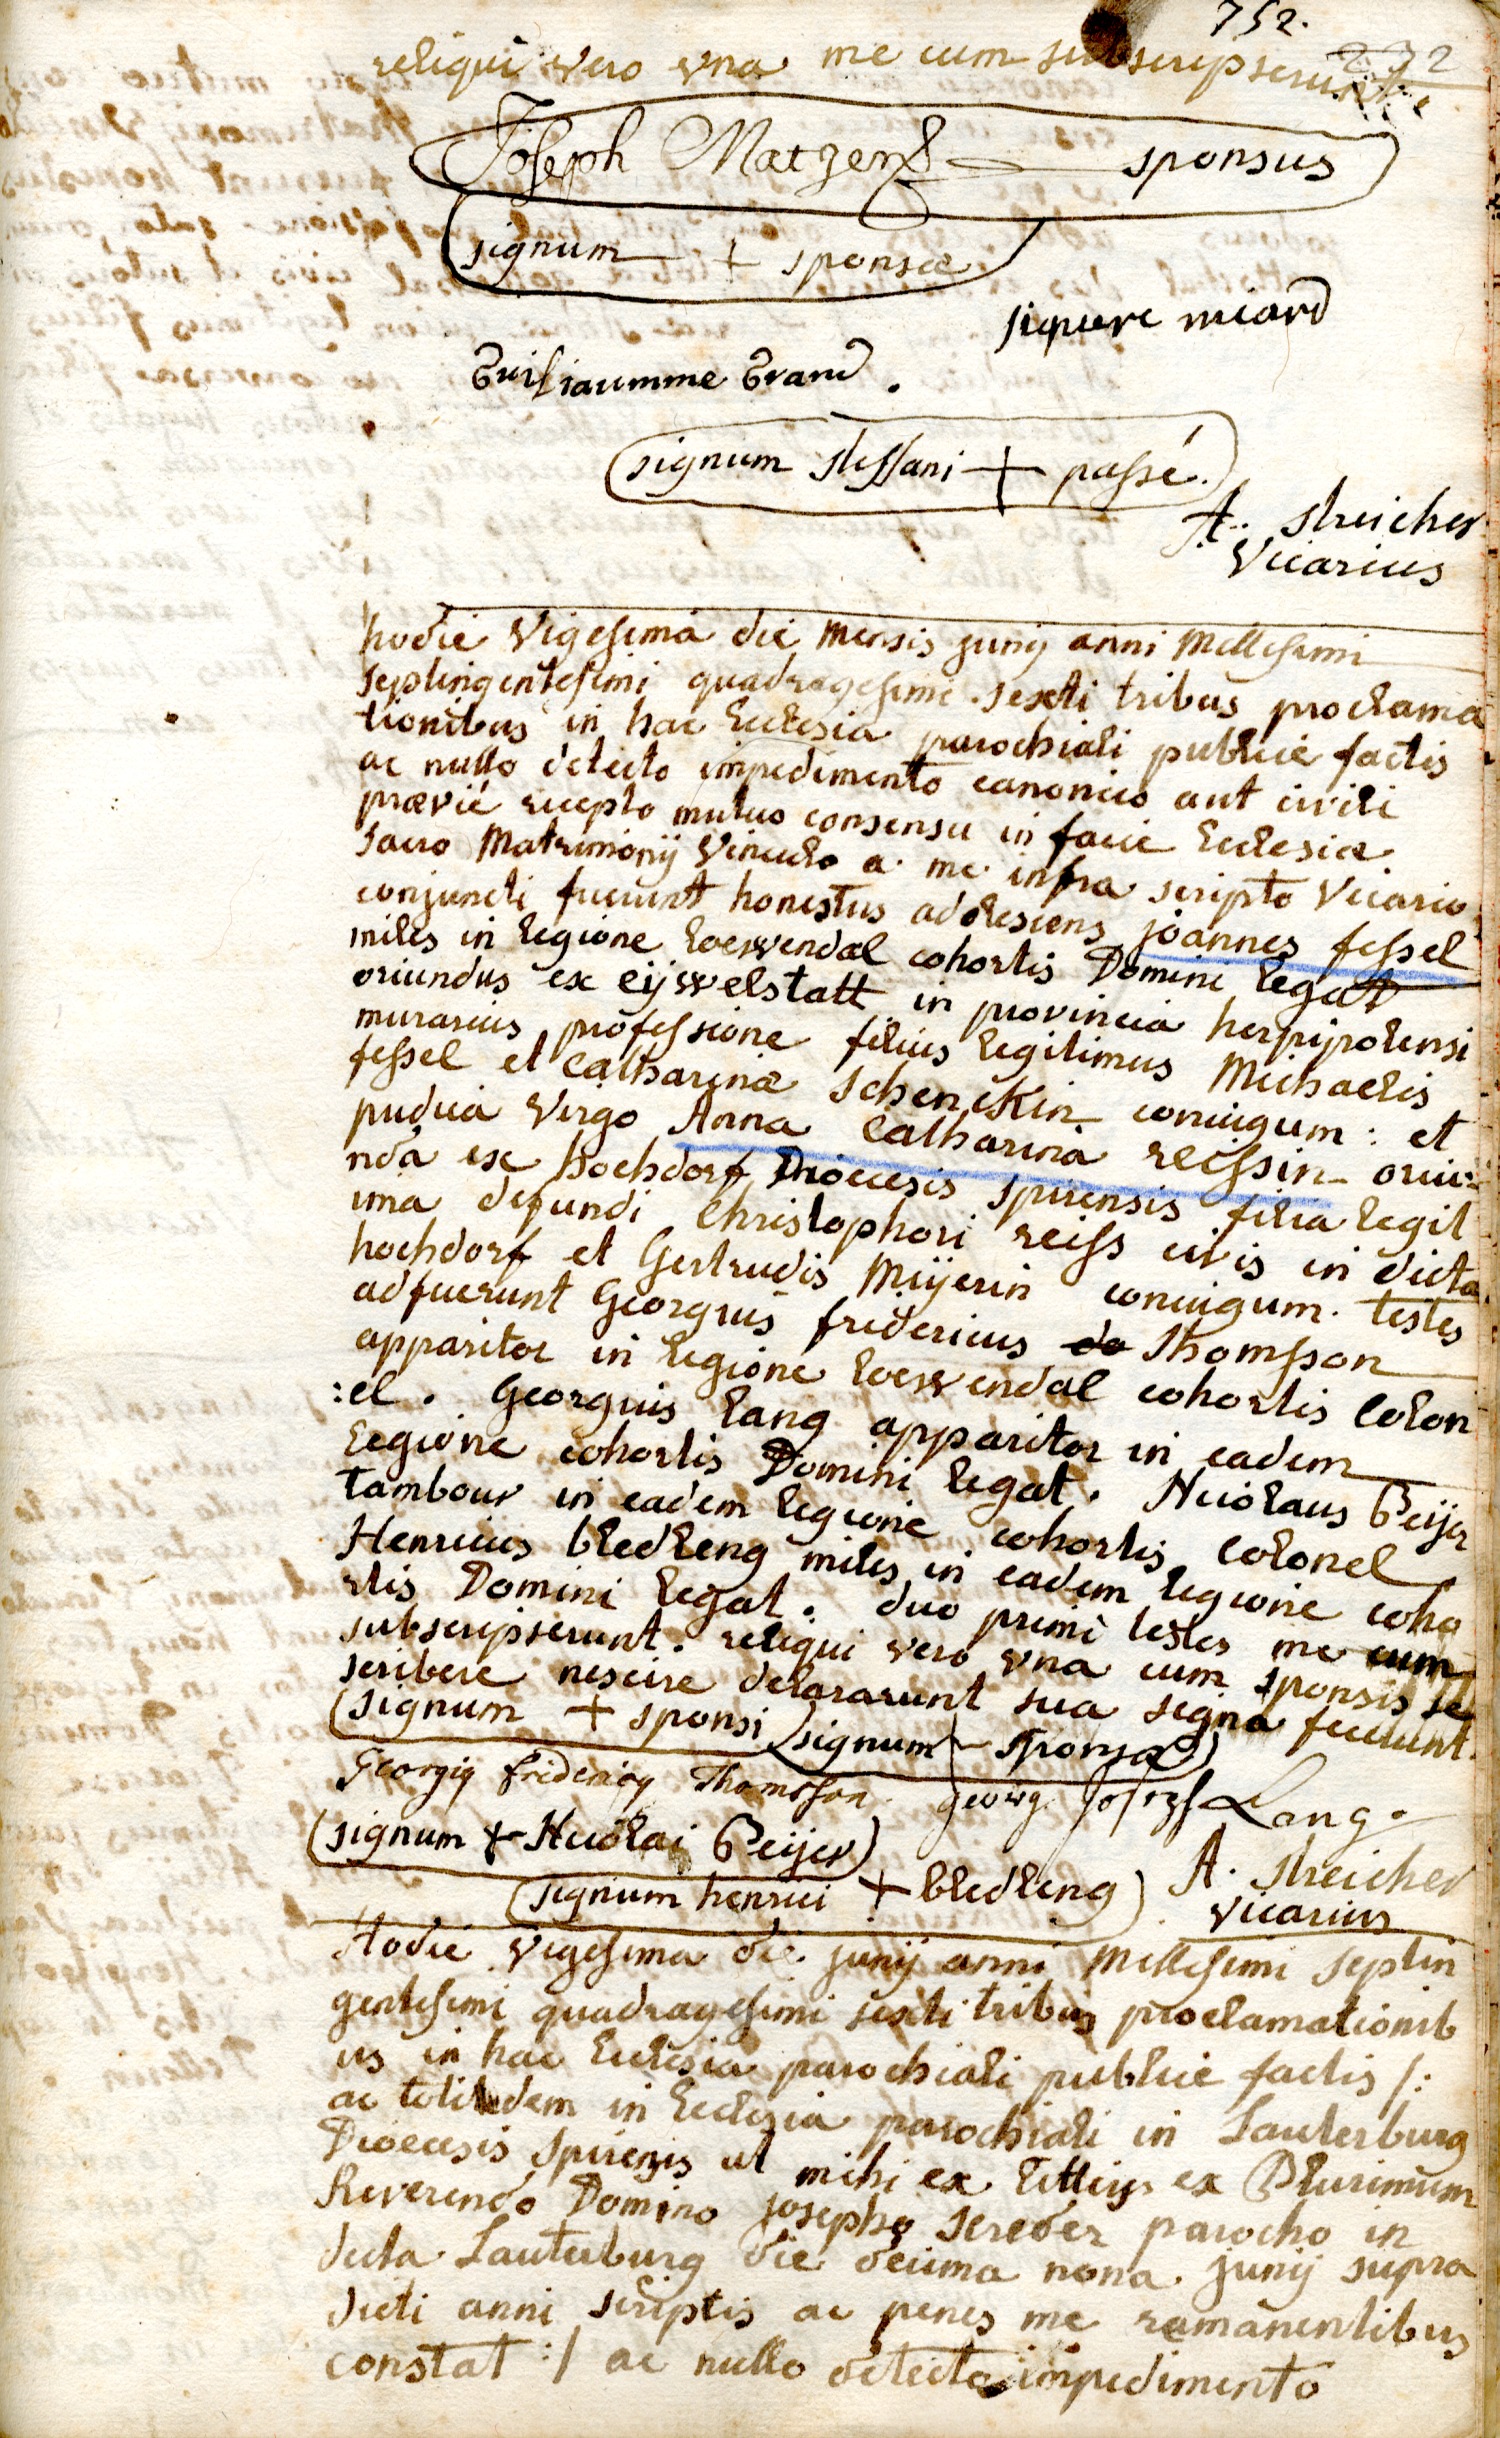 752.
232
reliqui vero vna me cum subscripserunt
Joseph Matzen sponsus
signum + sponsæ
sipure miard
Guilliaumme Grand.
signum steffani + passé.
A. Streicher
Vicarius
hodie Vigesima die Mensis junij anni Millesimi
septingentesimi quadragesimi sexti tribus proclama
tionibus in hac Ecclesia parochiali publice factis
ac nullo detecto impedimento canonico aut civili
prævié recepto mutuo consensu in facie Ecclesiæ
sacro Matrimonij Vinculo a me infra scripto Vicario
conjuncti fuerunt honestus adolescens joannes fessel
miles in legione Loewendal cohortis Domini Legat
oriundus ex eijwelstatt in provincia herpipolensi
murarius professione filius legitimus Michaelis
fessel et Catharinæ Schenckin coniugum : et
pudica virgo Anna Catharina reissin oriu:
nda ex hochdorf Dioecesis spirensis filia legit
ima defuncti Christophori reiss civis in dicta
hochdorf et Gertrudis Mijerin coniugum. testes
adfuerunt Georgius fridericus do Thomsson
apparitor in legione Loewendal cohortis Colon
:el. Georgius Lang apparitor in eadem
Legione cohortis Domini legat. Nicolaus Beijer
tambour in eadem legione cohortis Colonel
Henricus bledleng miles in eadem legione coho
rtis Domini Legat. duo primi testes me cum
subscripserunt. reliqui vero vna cum sponsis se
scribere nescire declararunt sua signa fecerunt.
signum + sponsi signum + sponsæ
Georgig fridericg Thomsson. georg Josepf Lang.
signum + Nicolai Beijer
signum henrici + bledleng
A. Streicher
Vicarius
Hodie vigesima die junij anni Millesimi septin
gentesimi quadragesimi sexti tribus proclamationib
us in hac Ecclesia parochiali publice factis /:
ac totidem in Ecclesia parochiali in Lauterburg
Dioecesis spirensis ut mihi ex littiis ex Plurimum
Reverendo Domino josepho screder parocho in
dicta Lauterburg die decima nona junij supra
dicti anni scriptis ac penes me remanentibus
constat :/ ac nullo detecto impedimento